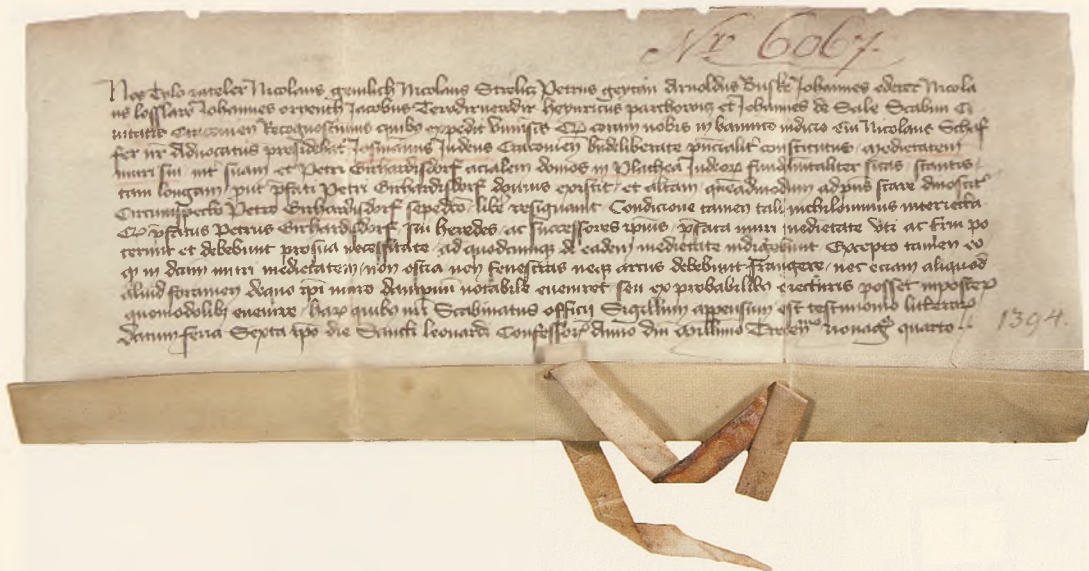 Nr 6067.
Nos Tylo rateler Nicolaus gemlich Nicolaus Strelicz Petrus geytan Arnoldus Buske Johannes ederer Nicola
us Johannes Jacobus Heynricus parthowicz et Johannes de Sale Scabini Ci
uitatis Cracouien Recognoscimus quibus expedit vniuersis Qz coram nobis in bannito iudicio cui Nicolaus Schef
fer nr Aduocatus presidebat Josmannus Judeus Cracouien bndeliberate pncialit constitutus medietatem
muri sui int suam et Petri Girhardisdorf acialem domos in Plathea Judeor fundmtaliter sitas stantis
tam longam put pfati Petri Girhardisdorf domus existit et altam quemadmodum ad pns stare dinoscit
Circumspecto Petro Girhardisdorf sepedco libe resignauit Condicione tamen tali nichilominus interiecta
Qz pfatus Petrus Girhardisdorf sui heredes ac successores ipius pfata muri medietate vti ac frui po
terunt et debebunt pro sua necessitate ad quodcumqz de eadem medietate indigebunt Excepto tamen eo
qz in dcam muri medietatem non ostia non fenestras neqz arcus debebunt frangere nec eciam aliquod
aliud foramen de quo ipi muro dampnum notabile eueniret seu ex probabilibz posset inposter
quomodolibt euenire harz quibz nri Scabinatus officii Sigillum appensum est testimonio litterar
Datum feria Sexta ipo die Sancti leonardi Confessor Anno dni Millimo Trecen nonag quarto
1394.